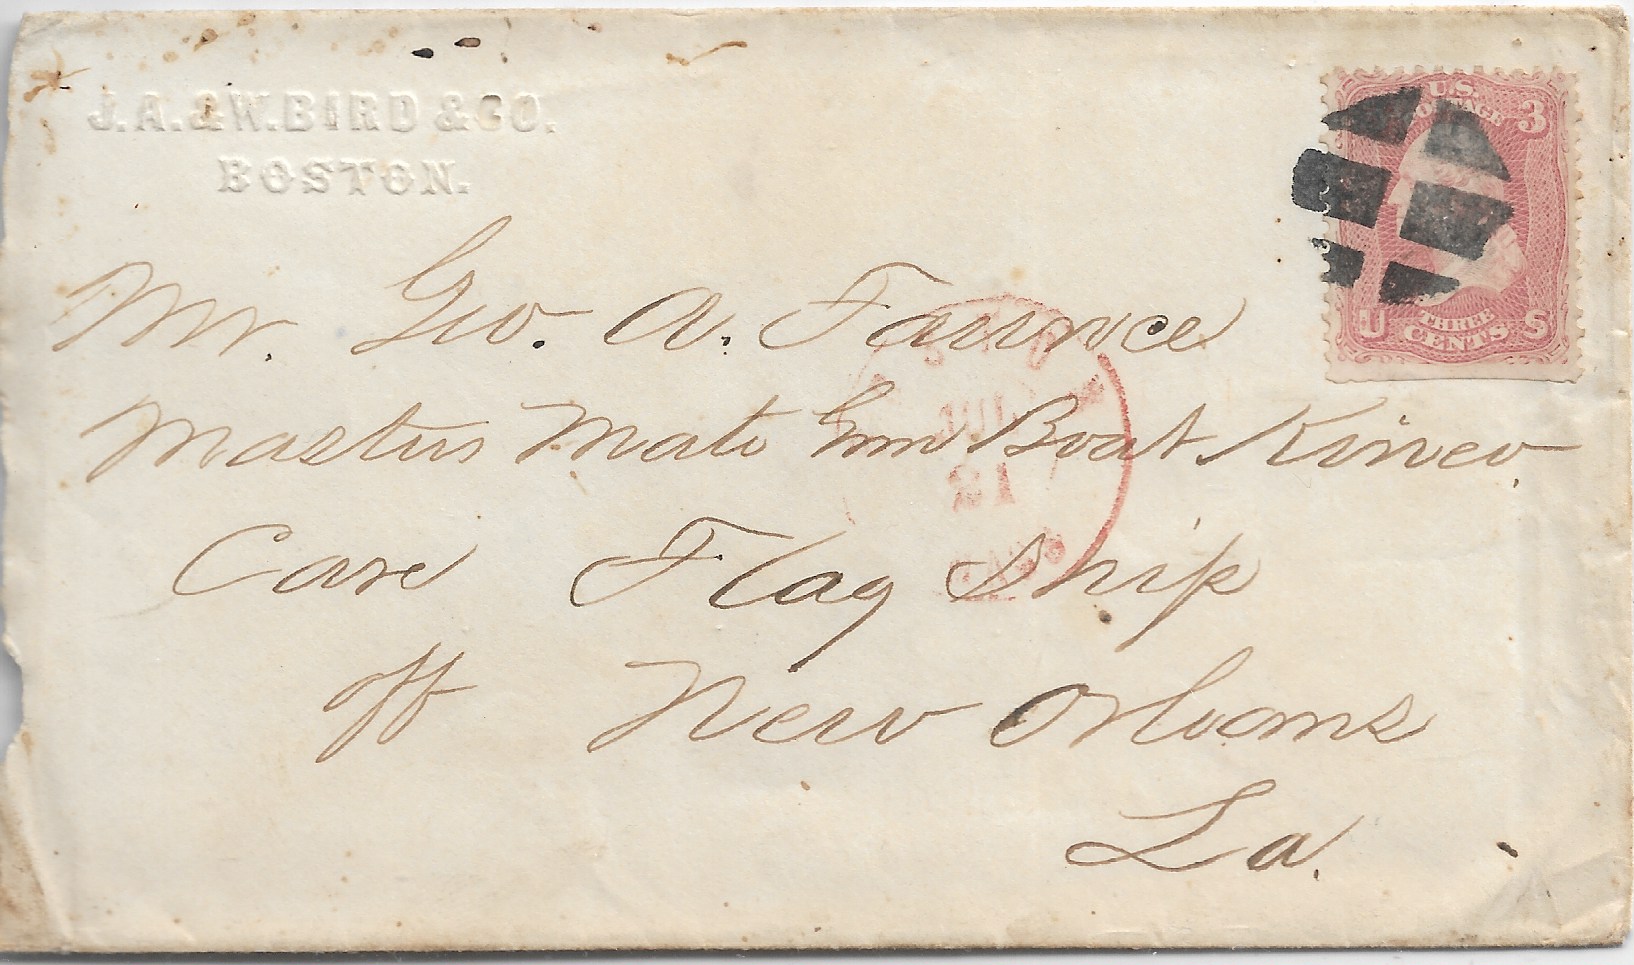 J.A. & W. BIRD & CO.
BOSTON.
U.S.
POSTAGE
3
U THREE S
CENTS
JUL
21
MASS
Mr. Geo. A. Faunce
Masters Mate Gun Boat Kineo,
Care Flag Ship
off New Orleans
La.